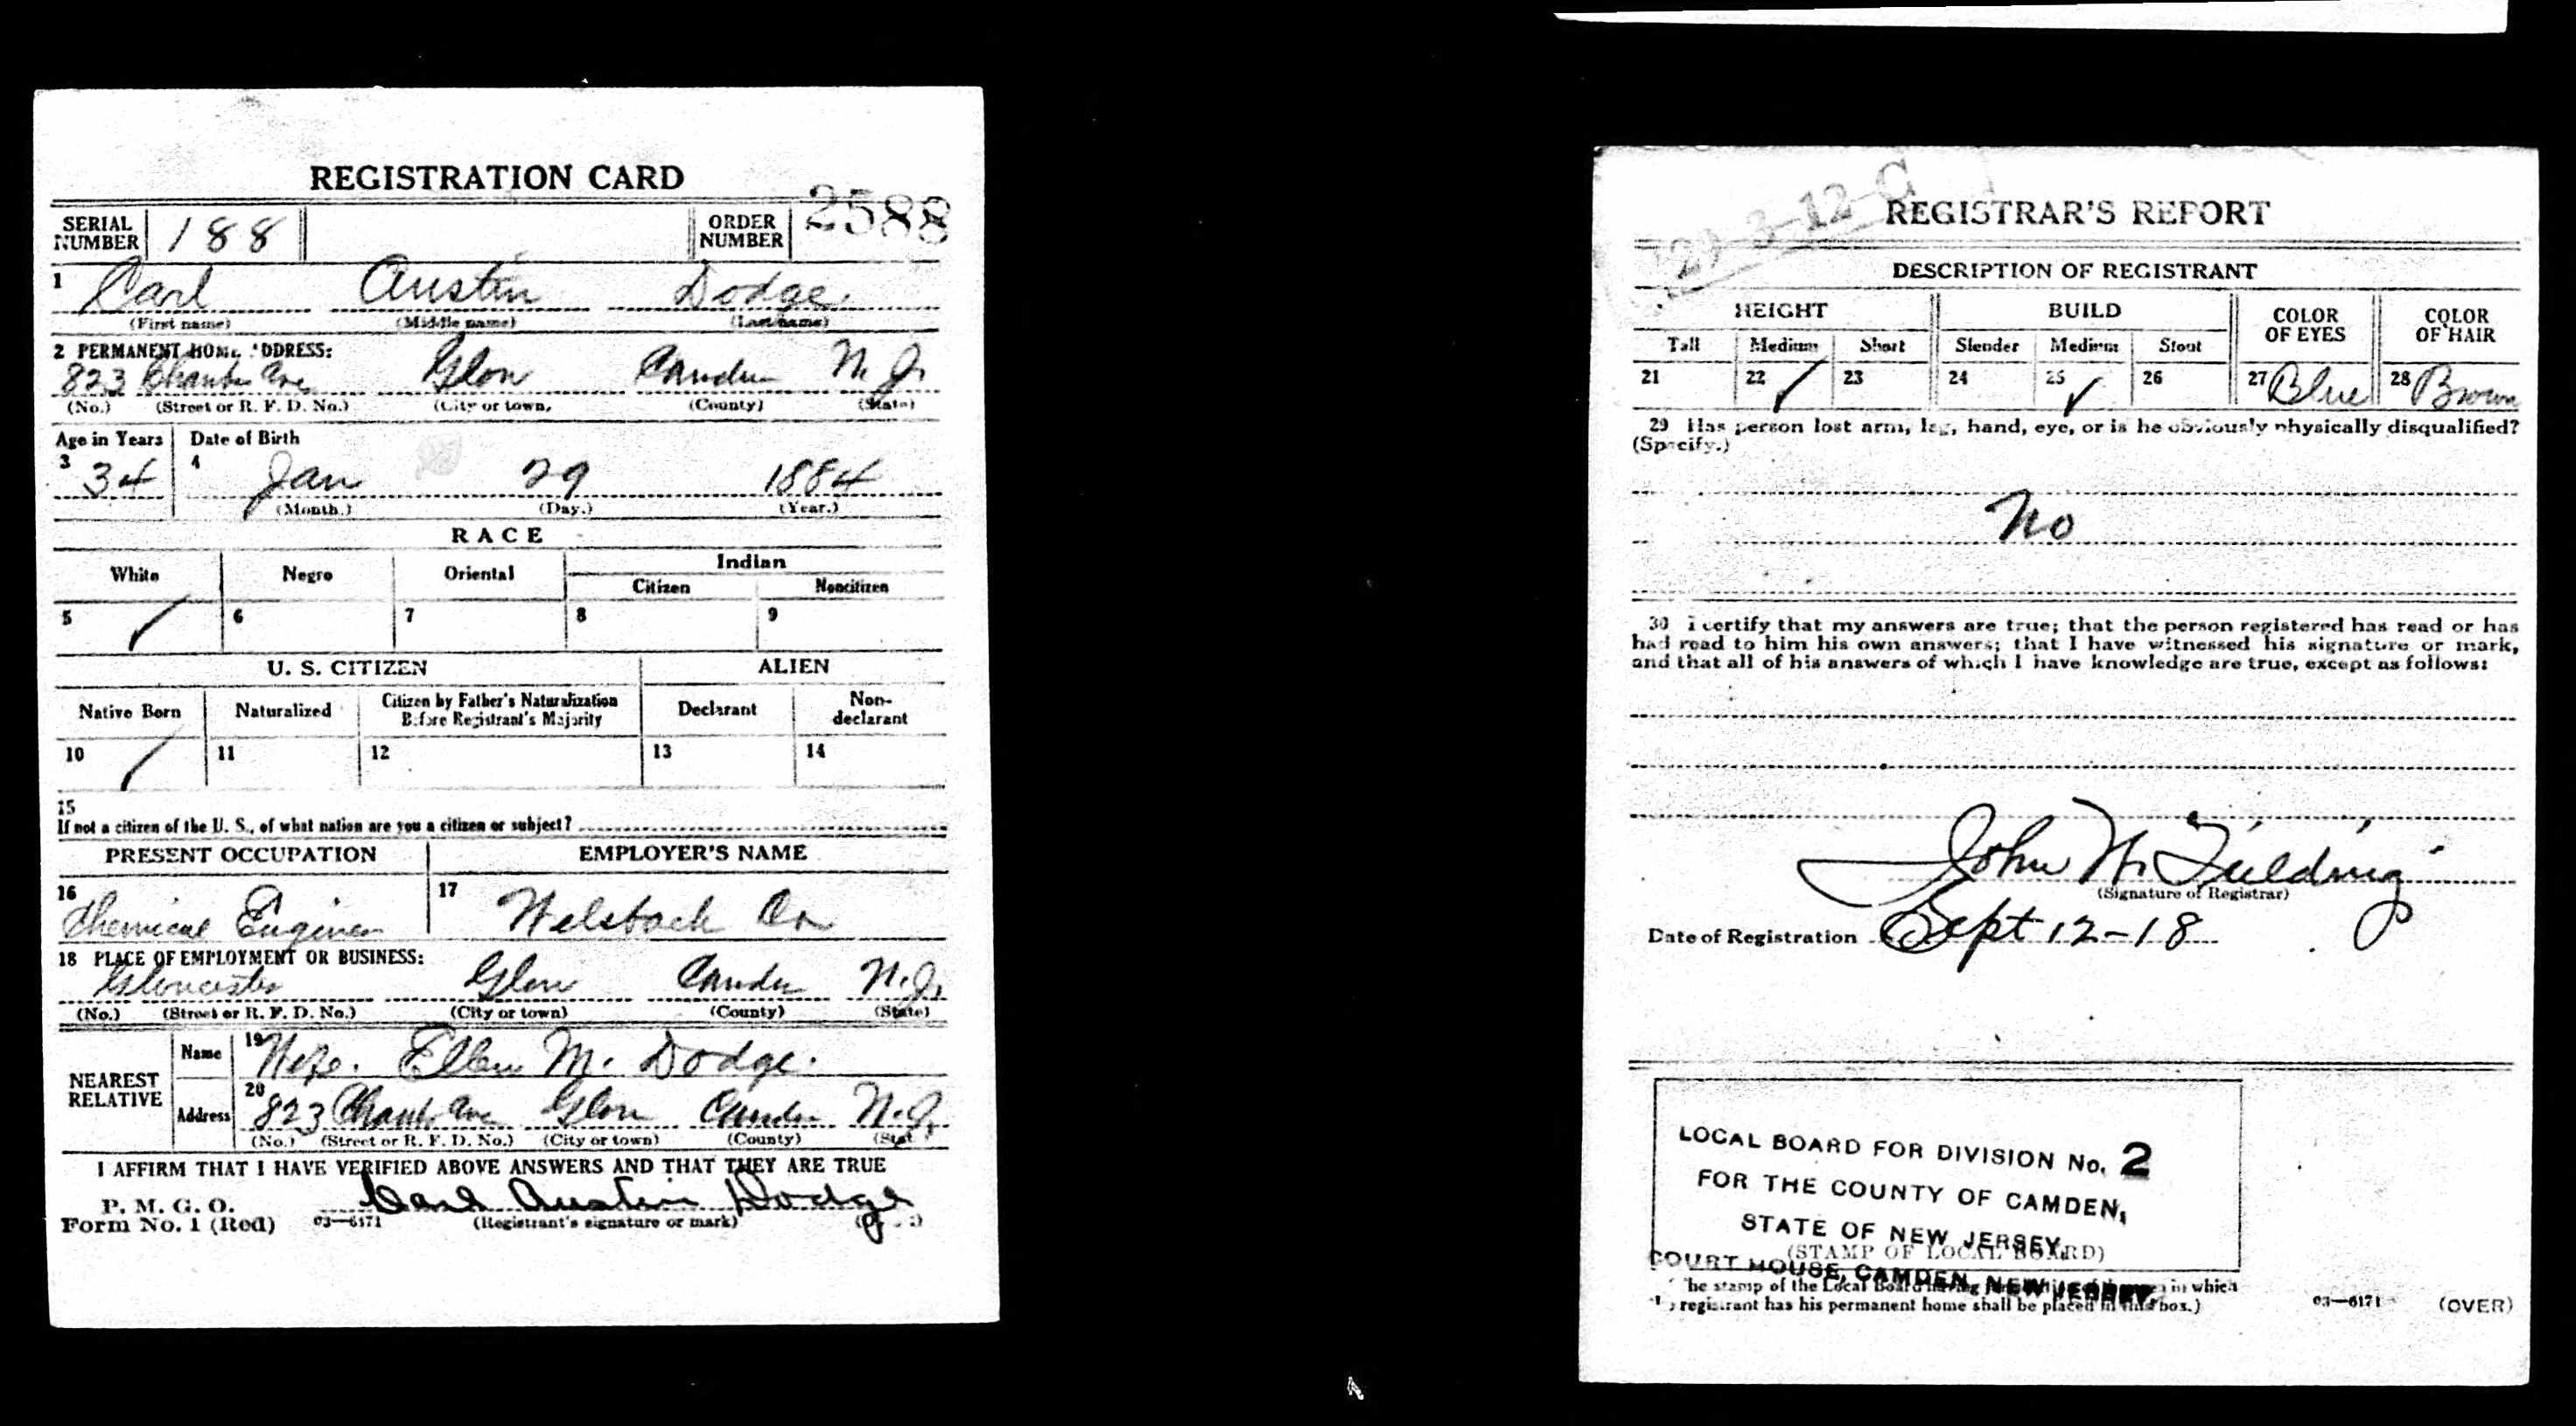 REGISTRATION CARD
SERIAL NUMBER 188 ORDER NUMBER 2588
1 Carl Austin Dodge
(First name) (Middle name) (Last name)
2 PERMANENT HOME ADDRESS:
823 Ave Glou Camden N. J.
(No.) (Street or R. F. D. No.) (City or town) (County) (State)
Age in Years Date of Birth
3 34 4 Jan 29 1884
(Month.) (Day.) (Year.)
RACE
White Negro Oriental Indian
Citizen Noncitizen
5 ✓ 6 7 8 9
U. S. CITIZEN ALIEN
Native Born Naturalized Citizen by Father's Naturalization Before Registrant's Majority Declarant Non-declarant
10 ✓ 11 12 13 14
15
If not a citizen of the U. S., of what nation are you a citizen or subject?
PRESENT OCCUPATION EMPLOYER'S NAME
16 Chemical Engineer 17 Welsbach Co
18 PLACE OF EMPLOYMENT OR BUSINESS:
Gloucester Glou Camden N. J.
(No.) (Street or R. F. D. No.) (City or town) (County) (State)
NEAREST RELATIVE
Name 19 Wife. Ellen M. Dodge.
Address 20 823 Ave Glou Camden N. J.
(No.) (Street or R. F. D. No.) (City or town) (County) (State)
I AFFIRM THAT I HAVE VERIFIED ABOVE ANSWERS AND THAT THEY ARE TRUE
P. M. G. O.
Form No. 1 (Red) 03—6171 Carl Austin Dodge
(Registrant's signature or mark)
29-3-12-C
REGISTRAR'S REPORT
DESCRIPTION OF REGISTRANT
HEIGHT BUILD COLOR OF EYES COLOR OF HAIR
Tall Medium Short Slender Medium Stout
21 22 ✓ 23 24 25 ✓ 26 27 Blue 28 Brown
29 Has person lost arm, leg, hand, eye, or is he obviously physically disqualified?
(Specify.)
No
30 I certify that my answers are true; that the person registered has read or has
had read to him his own answers; that I have witnessed his signature or mark,
and that all of his answers of which I have knowledge are true, except as follows:
John W. Fielding
(Signature of Registrar)
Date of Registration Sept 12-18
LOCAL BOARD FOR DIVISION No. 2
FOR THE COUNTY OF CAMDEN,
STATE OF NEW JERSEY,
(STAMP OF LOCAL BOARD)
COURT HOUSE, CAMDEN, NEW JERSEY.
The stamp of the Local Board having in which
registrant has his permanent home shall be placed in this box.)
03—6171 (OVER)